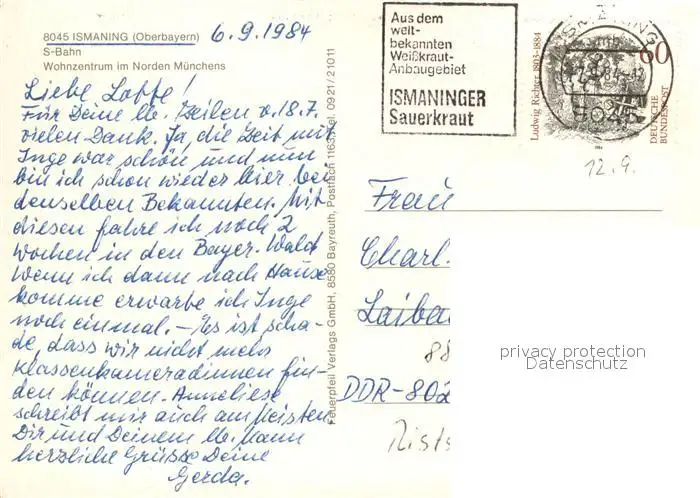 8045 ISMANING (Oberbayern) 6.9.1984
S-Bahn
Wohnzentrum im Norden Münchens
Liebe Lotte!
Für Deine lb. Zeilen v. 18.7.
vielen Dank. Ja, die Zeit mit
Inge war schön und nun
bin ich schon wieder hier bei
denselben Bekannten. Mit
diesen fahre ich noch 2
Wochen in den Bayer. Wald
Wenn ich dann nach Hause
komme erwarte ich Inge
noch einmal. – Es ist scha-
de, dass wir nicht mehr
Klassenkameradinnen fin-
den können. Anneliese
schreibt mir auch am meisten
Dir und Deinem lb. Mann
herzliche Grüsse Deine
Gerda.
Feuerpfeil Verlags GmbH, 8580 Bayreuth, Postfach 1163, Tel. 0921/21011
Aus dem
welt-
bekannten
Weißkraut-
Anbaugebiet
ISMANINGER
Sauerkraut
ISMANING
8045
Ludwig Richter 1803-1884
60
DEUTSCHE
BUNDESPOST
12.9.
Frau
Charl.
Laiba
88
DDR-802
privacy protection
Datenschutz